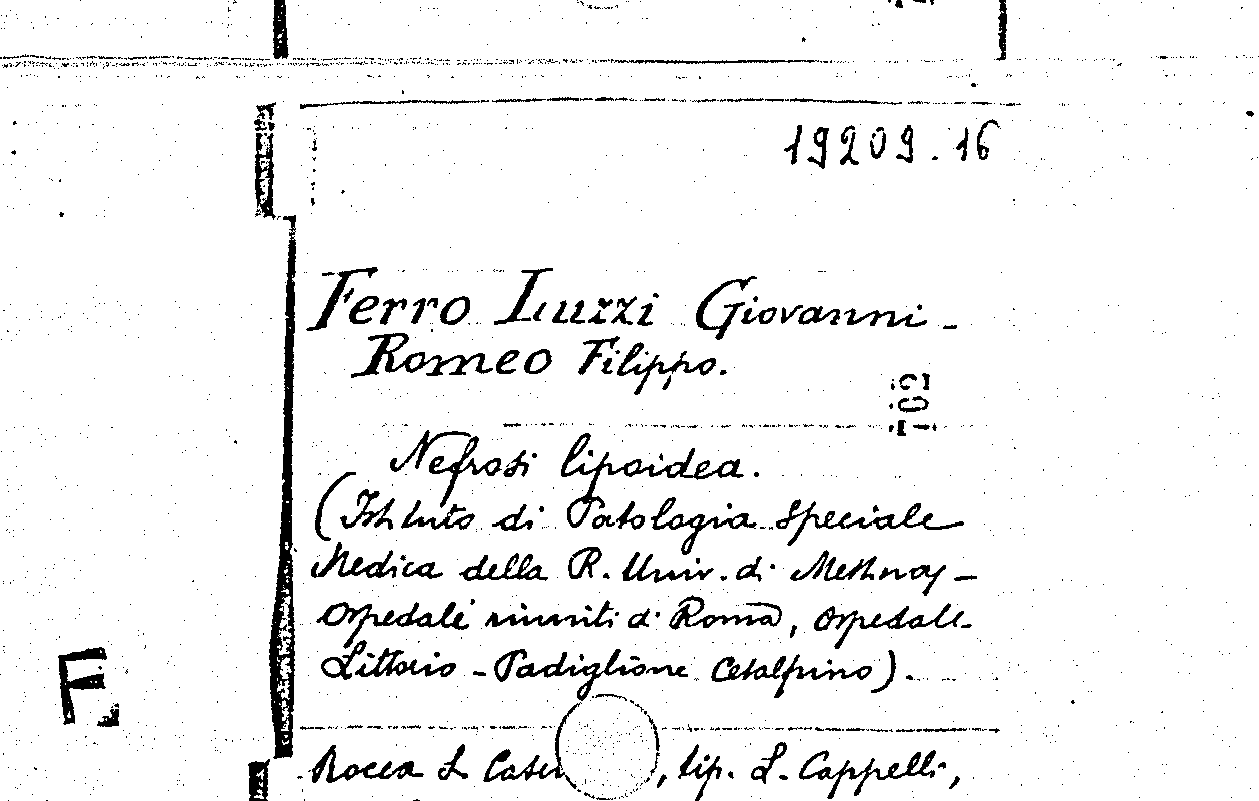 19209.16
Ferro Luzzi Giovanni -
Romeo Filippo.
102
Nefrosi lipoidea.
(Istituto di Patologia Speciale
Medica della R. Univ. di Messina -
Ospedali riuniti di Roma, Ospedale
Littorio - Padiglione Cesalpino).
F.
Rocca S. Casci , tip. L. Cappelli,